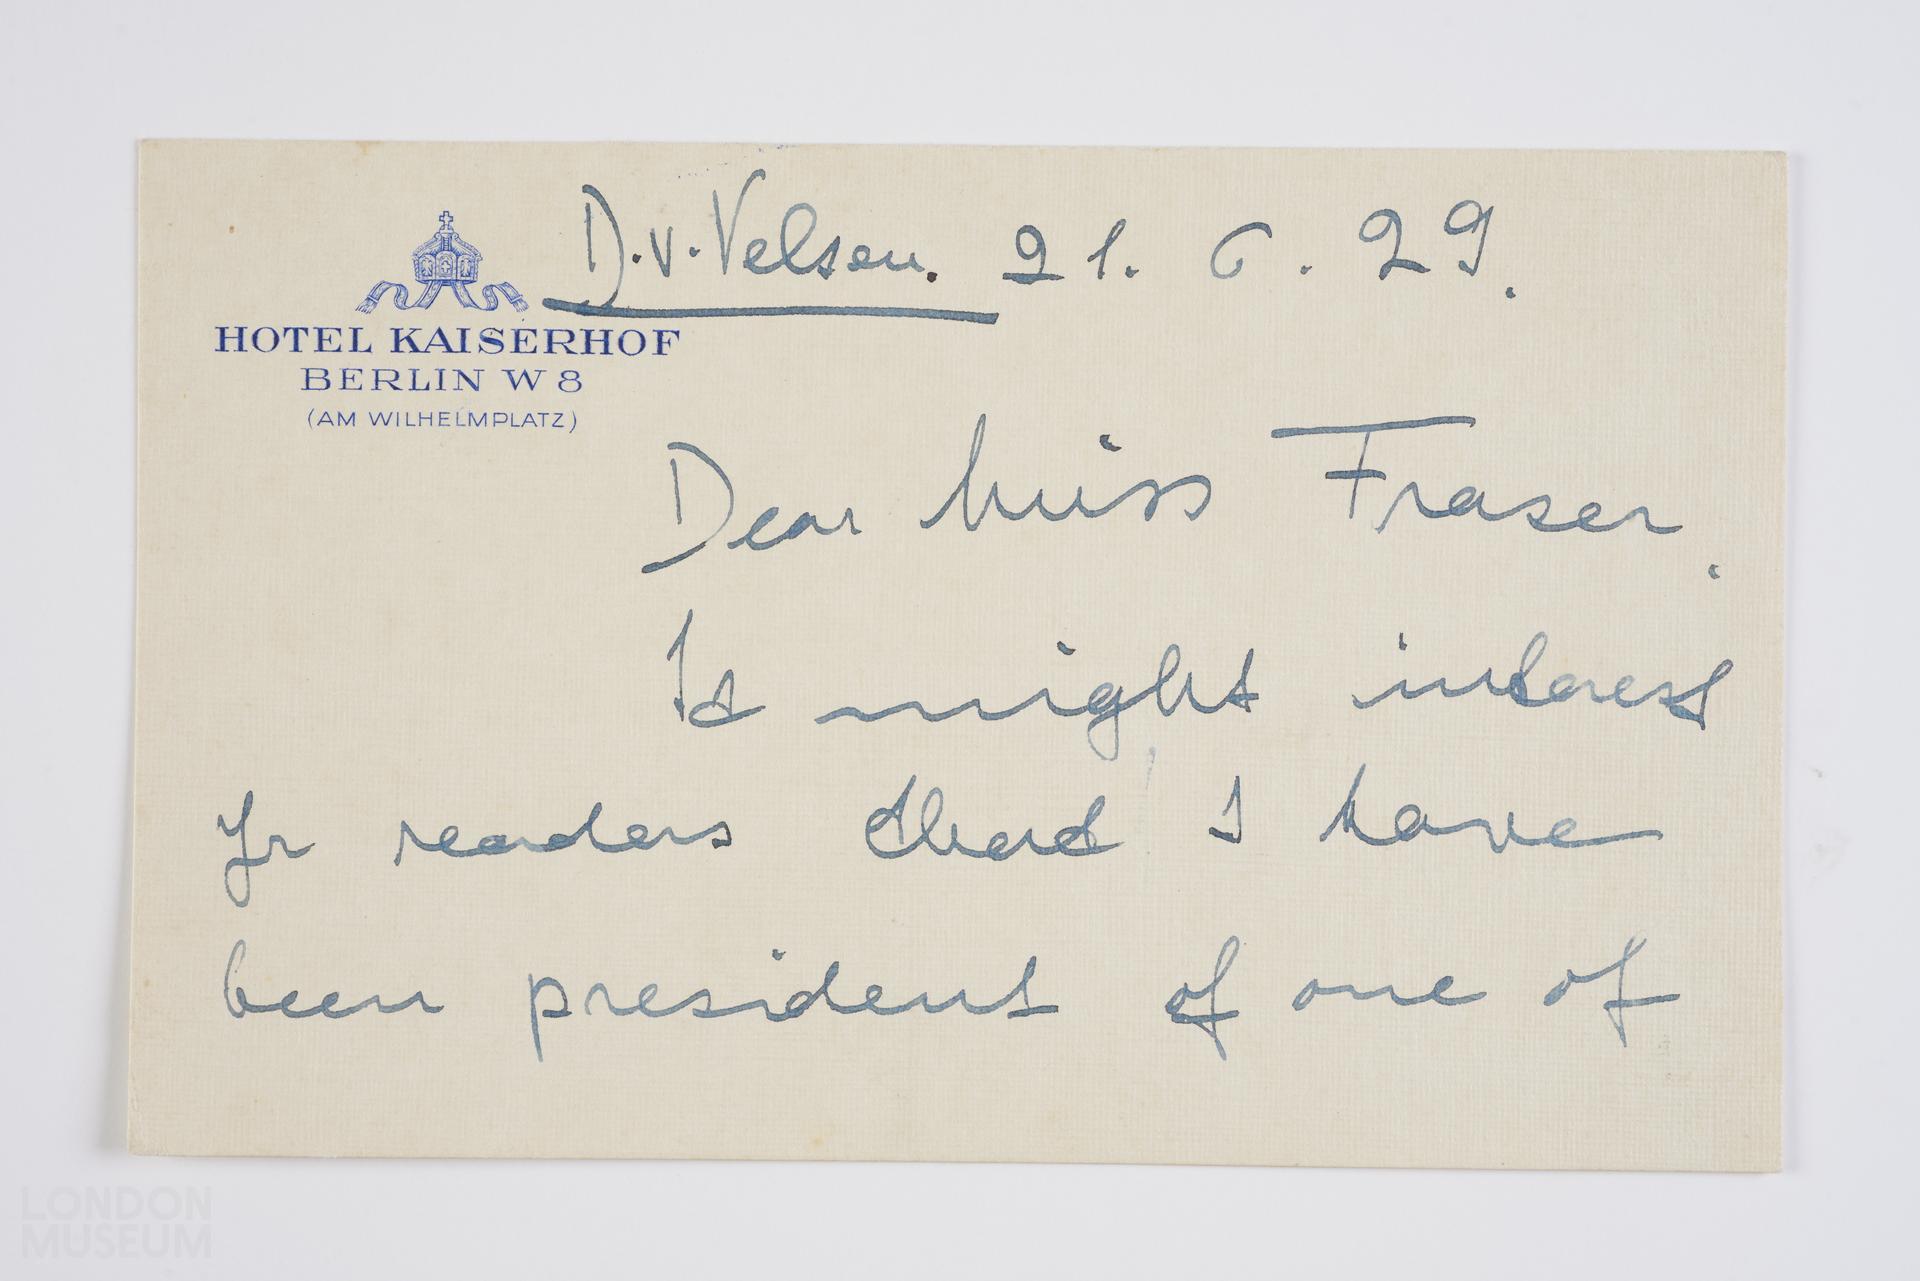 D. v. Velsen. 21. 6. 29.
HOTEL KAISERHOF
BERLIN W 8
(AM WILHELMPLATZ)
Dear Miss Fraser.
It might interest
yr readers that I have
been president of one of
LONDON
MUSEUM